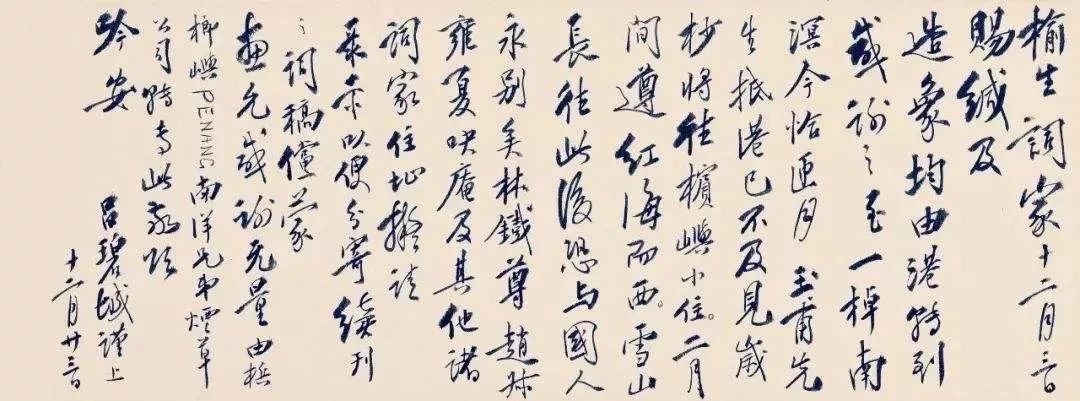 榆生詞家十二月三日
賜緘及
造象均由港轉到
感謝之至一棹南
溟今恰匝月 玉甫先
生抵港已不及見歲
杪將往檳嶼小住。二月
間遵紅海而西。雪山
長往此後恐与國人
永别矣林鐵尊趙叔
雍夏吷庵及其他諸
詞家住址擬請
录示以便分寄續刊
之詞稿儻蒙
惠允感謝无量由梹
榔嶼PENANG南洋兄弟煙草
公司轉专此敬頌
吟安
吕碧城謹上
十二月廿三日